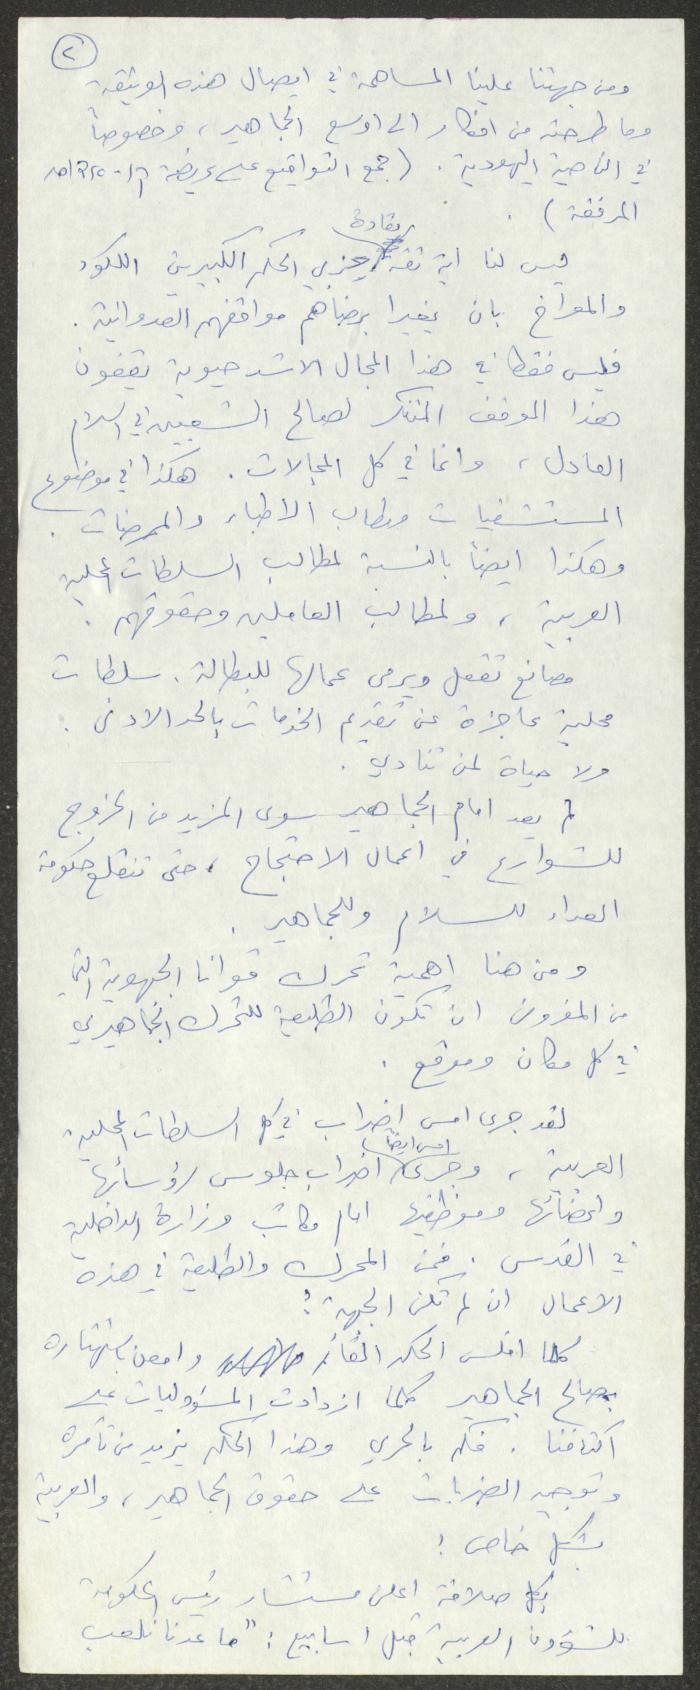 ٢
ومن جهتنا علينا المساهمة في ايصال هذه الوثيقة
وما طرحته من افكار الى اوسع الجماهير، وخصوصاً
في الناحية اليهودية. (جمع التواقيع على عريضة
المرفقة).
بقادة
ليس لنا اية ثقة حزبي الحكم الكبيرين الليكود
والمعراخ بان يغيرا برضاهم مواقفهم العدوانية.
فليس فقط في هذا المجال الاشد حيوية يقفون
هذا الموقف المتنكر لصالح الشعبين في السلام
العادل، وانما في كل المجالات. هكذا في موضوع
المستشفيات ومطالب الاطباء والممرضات.
وهكذا ايضاً بالنسبة لمطالب السلطات المحلية
العربية، ولمطالب العاملين وحقوقهم.
مصانع تقفل ويرمى عمالها للبطالة. سلطات
محلية عاجزة عن تقديم الخدمات بالحد الادنى.
ولا حياة لمن تنادي.
لم يعد امام الجماهير سوى المزيد من الخروج
للشوارع في اعمال الاحتجاج، حتى تنقلع حكومة
العداء للسلام وللجماهير.
ومن هنا اهمية تحرك قوانا الجبهوية التي
من المفروض ان تكون الطليعة للتحرك الجماهيري
في كل مكان وموقع.
لقد جرى امس اضراب في كل السلطات المحلية
امس ايضاً
العربية، وجرى اضراب جلوس لرؤسائها
واعضائها وموظفيها امام مكاتب وزارة الداخلية
في القدس. فمن المحرك والطليعة في هذه
الاعمال ان لم تكن الجبهة؟
كلما افلس الحكم القائم وامعن باستهتاره
بصالح الجماهير كلما ازدادت المسؤوليات على
اكتافنا. فكم بالحري وهذا الحكم يزيد من تآمره
وتوجيه الضربات على حقوق الجماهير، والعربية
بشكل خاص!
بكل صلافة اعلن مستشار رئيس الحكومة
للشؤون العربية قبل اسابيع: "ما عدنا نلعب